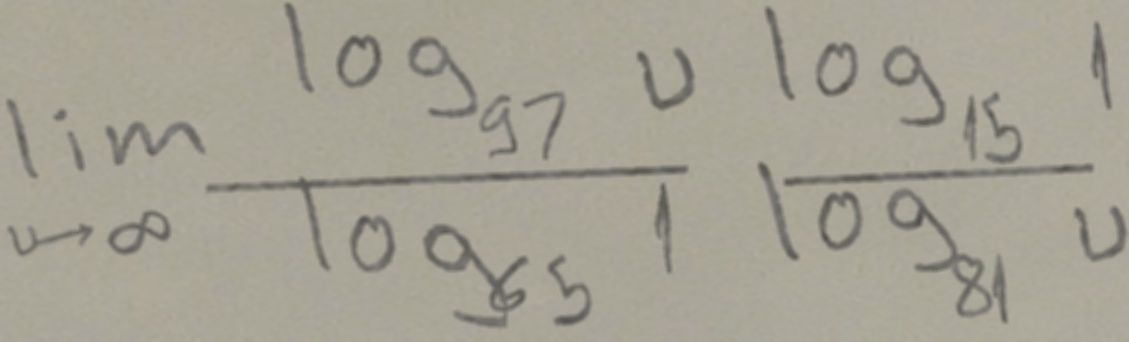 \lim_{v \to \infty} \frac{\log_{97} v}{\log_{65} 1} \frac{\log_{15} 1}{\log_{81} v}